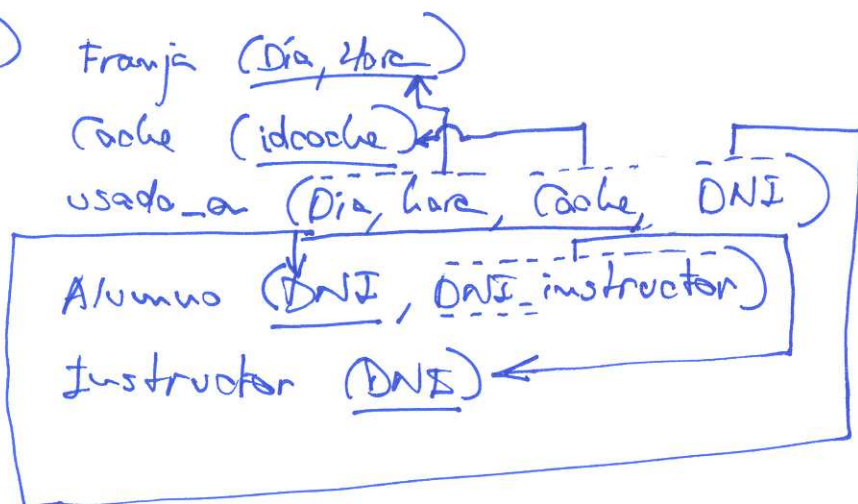 )
Franja (Día, Hora)
Coche (idcoche)
usado_en (Día, hora, Coche, DNI)
Alumno (DNI, DNI_instructor)
Instructor (DNI)